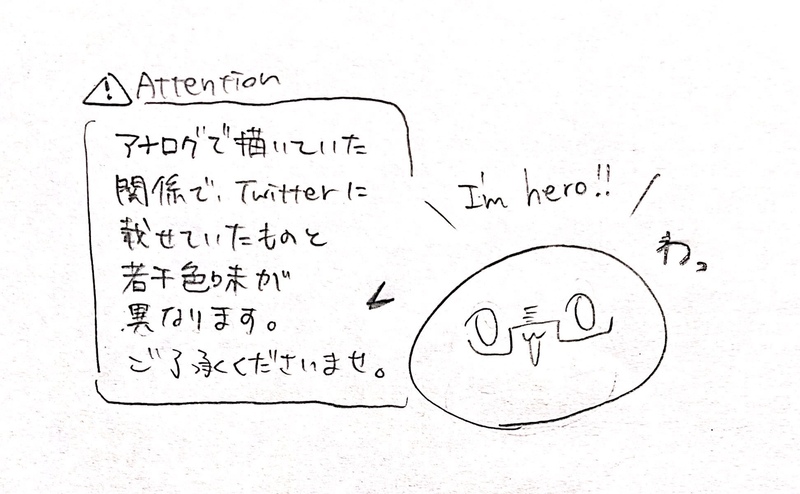 Attention
アナログで描いていた
関係で、Twitterに
載せていたものと
若干色味が
異なります。
ご了承くださいませ。
I'm hero!!
わっ